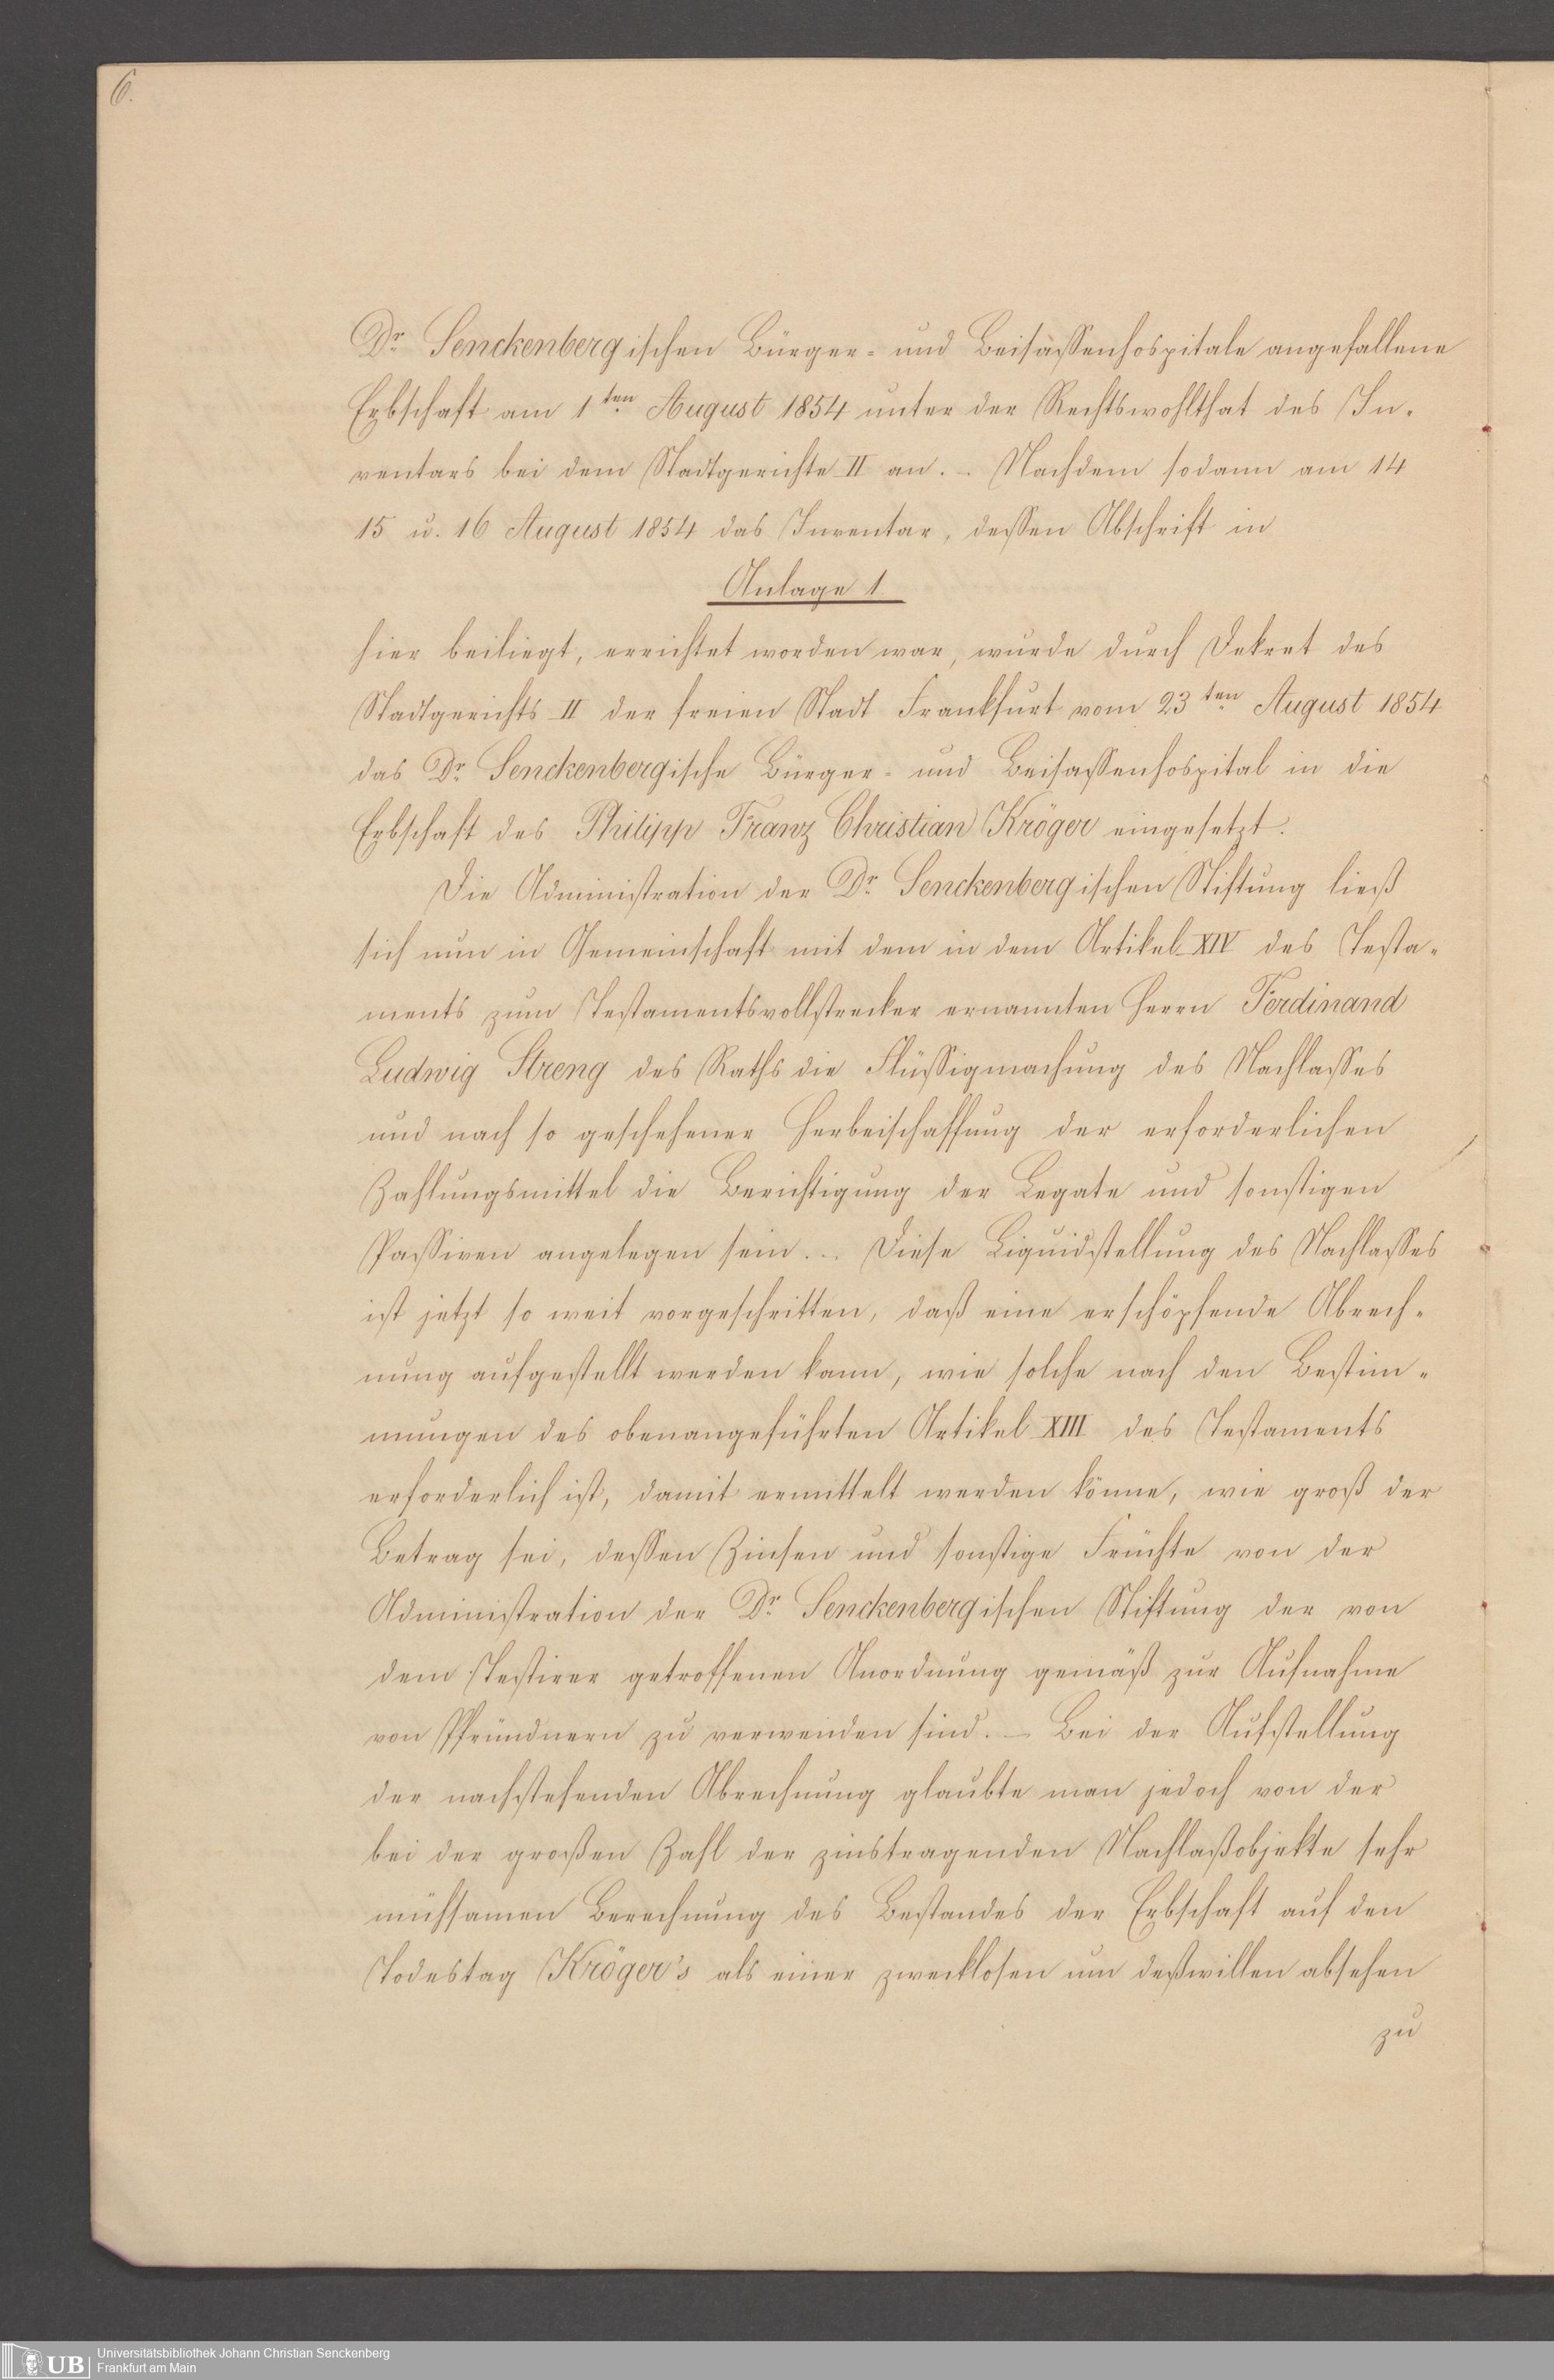 6.
Dr. Senckenbergischen Bürger- und Beisassenhospitale angefallene
Erbschaft am 1ten August 1854 unter der Rechtswohlthat des In-
ventars bei dem Stadtgerichte II an. – Nachdem sodann am 14
15 u. 16 August 1854 das Inventar, dessen Abschrift in
Anlage 1
hier beiliegt, errichtet worden war, wurde durch Dekret des
Stadtgerichts II der freien Stadt Frankfurt vom 23ten August 1854
das Dr. Senckenbergische Bürger- und Beisassenhospital in die
Erbschaft des Philipp Franz Christian Kröger eingesetzt.
Die Administration der Dr. Senckenbergischen Stiftung ließ
sich nun in Gemeinschaft mit dem in dem Artikel XIV des Testa-
ments zum Testamentsvollstrecker ernannten Herrn Ferdinand
Ludwig Streng des Raths die Flüssigmachung des Nachlasses
und nach so geschehener Herbeischaffung der erforderlichen
Zahlungsmittel die Berichtigung der Legate und sonstigen
Passiven angelegen sein. – Diese Liquidstellung des Nachlasses
ist jetzt so weit vorgeschritten, daß eine erschöpfende Abrech-
nung aufgestellt werden kann, wie solche nach den Bestim-
mungen des obenangeführten Artikel XIII des Testaments
erforderlich ist, damit ermittelt werden könne, wie groß der
Betrag sei, dessen Zinsen und sonstige Früchte von der
Administration der Dr. Senckenbergischen Stiftung der von
dem Testirer getroffenen Anordnung gemäß zur Aufnahme
von Pfründnern zu verwenden sind. – Bei der Aufstellung
der nachstehenden Abrechnung glaubte man jedoch von der
bei der großen Zahl der zinstragenden Nachlaßobjekte sehr
mühsamen Berechnung des Bestandes der Erbschaft auf den
Todestag Kröger's als einer zwecklosen um deßwillen absehen
zu
UB
Universitätsbibliothek Johann Christian Senckenberg
Frankfurt am Main